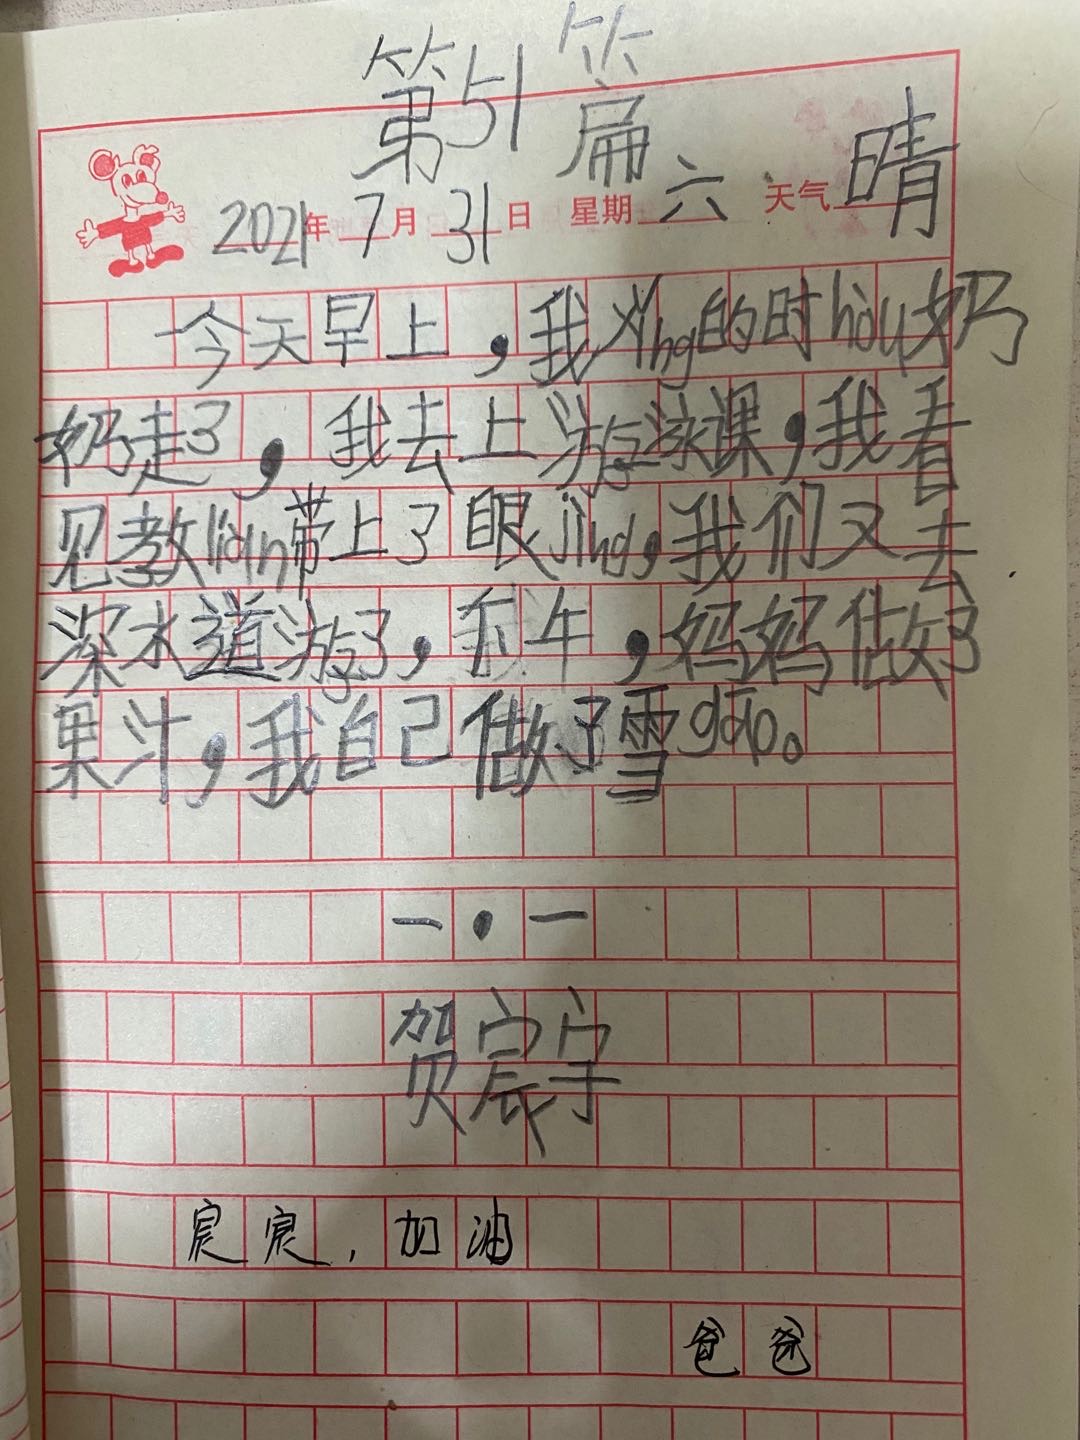 第51篇
2021年7月31日 星期六 天气晴
今天早上，我xǐng的时hòu奶
奶走了，我去上游泳课，我看
见教liàn带上了眼jìng，我们又去
深水道游了，下午，妈妈做了
果汁，我自己做了雪gāo。
一·一
贺宸宇
宸宸，加油
爸爸